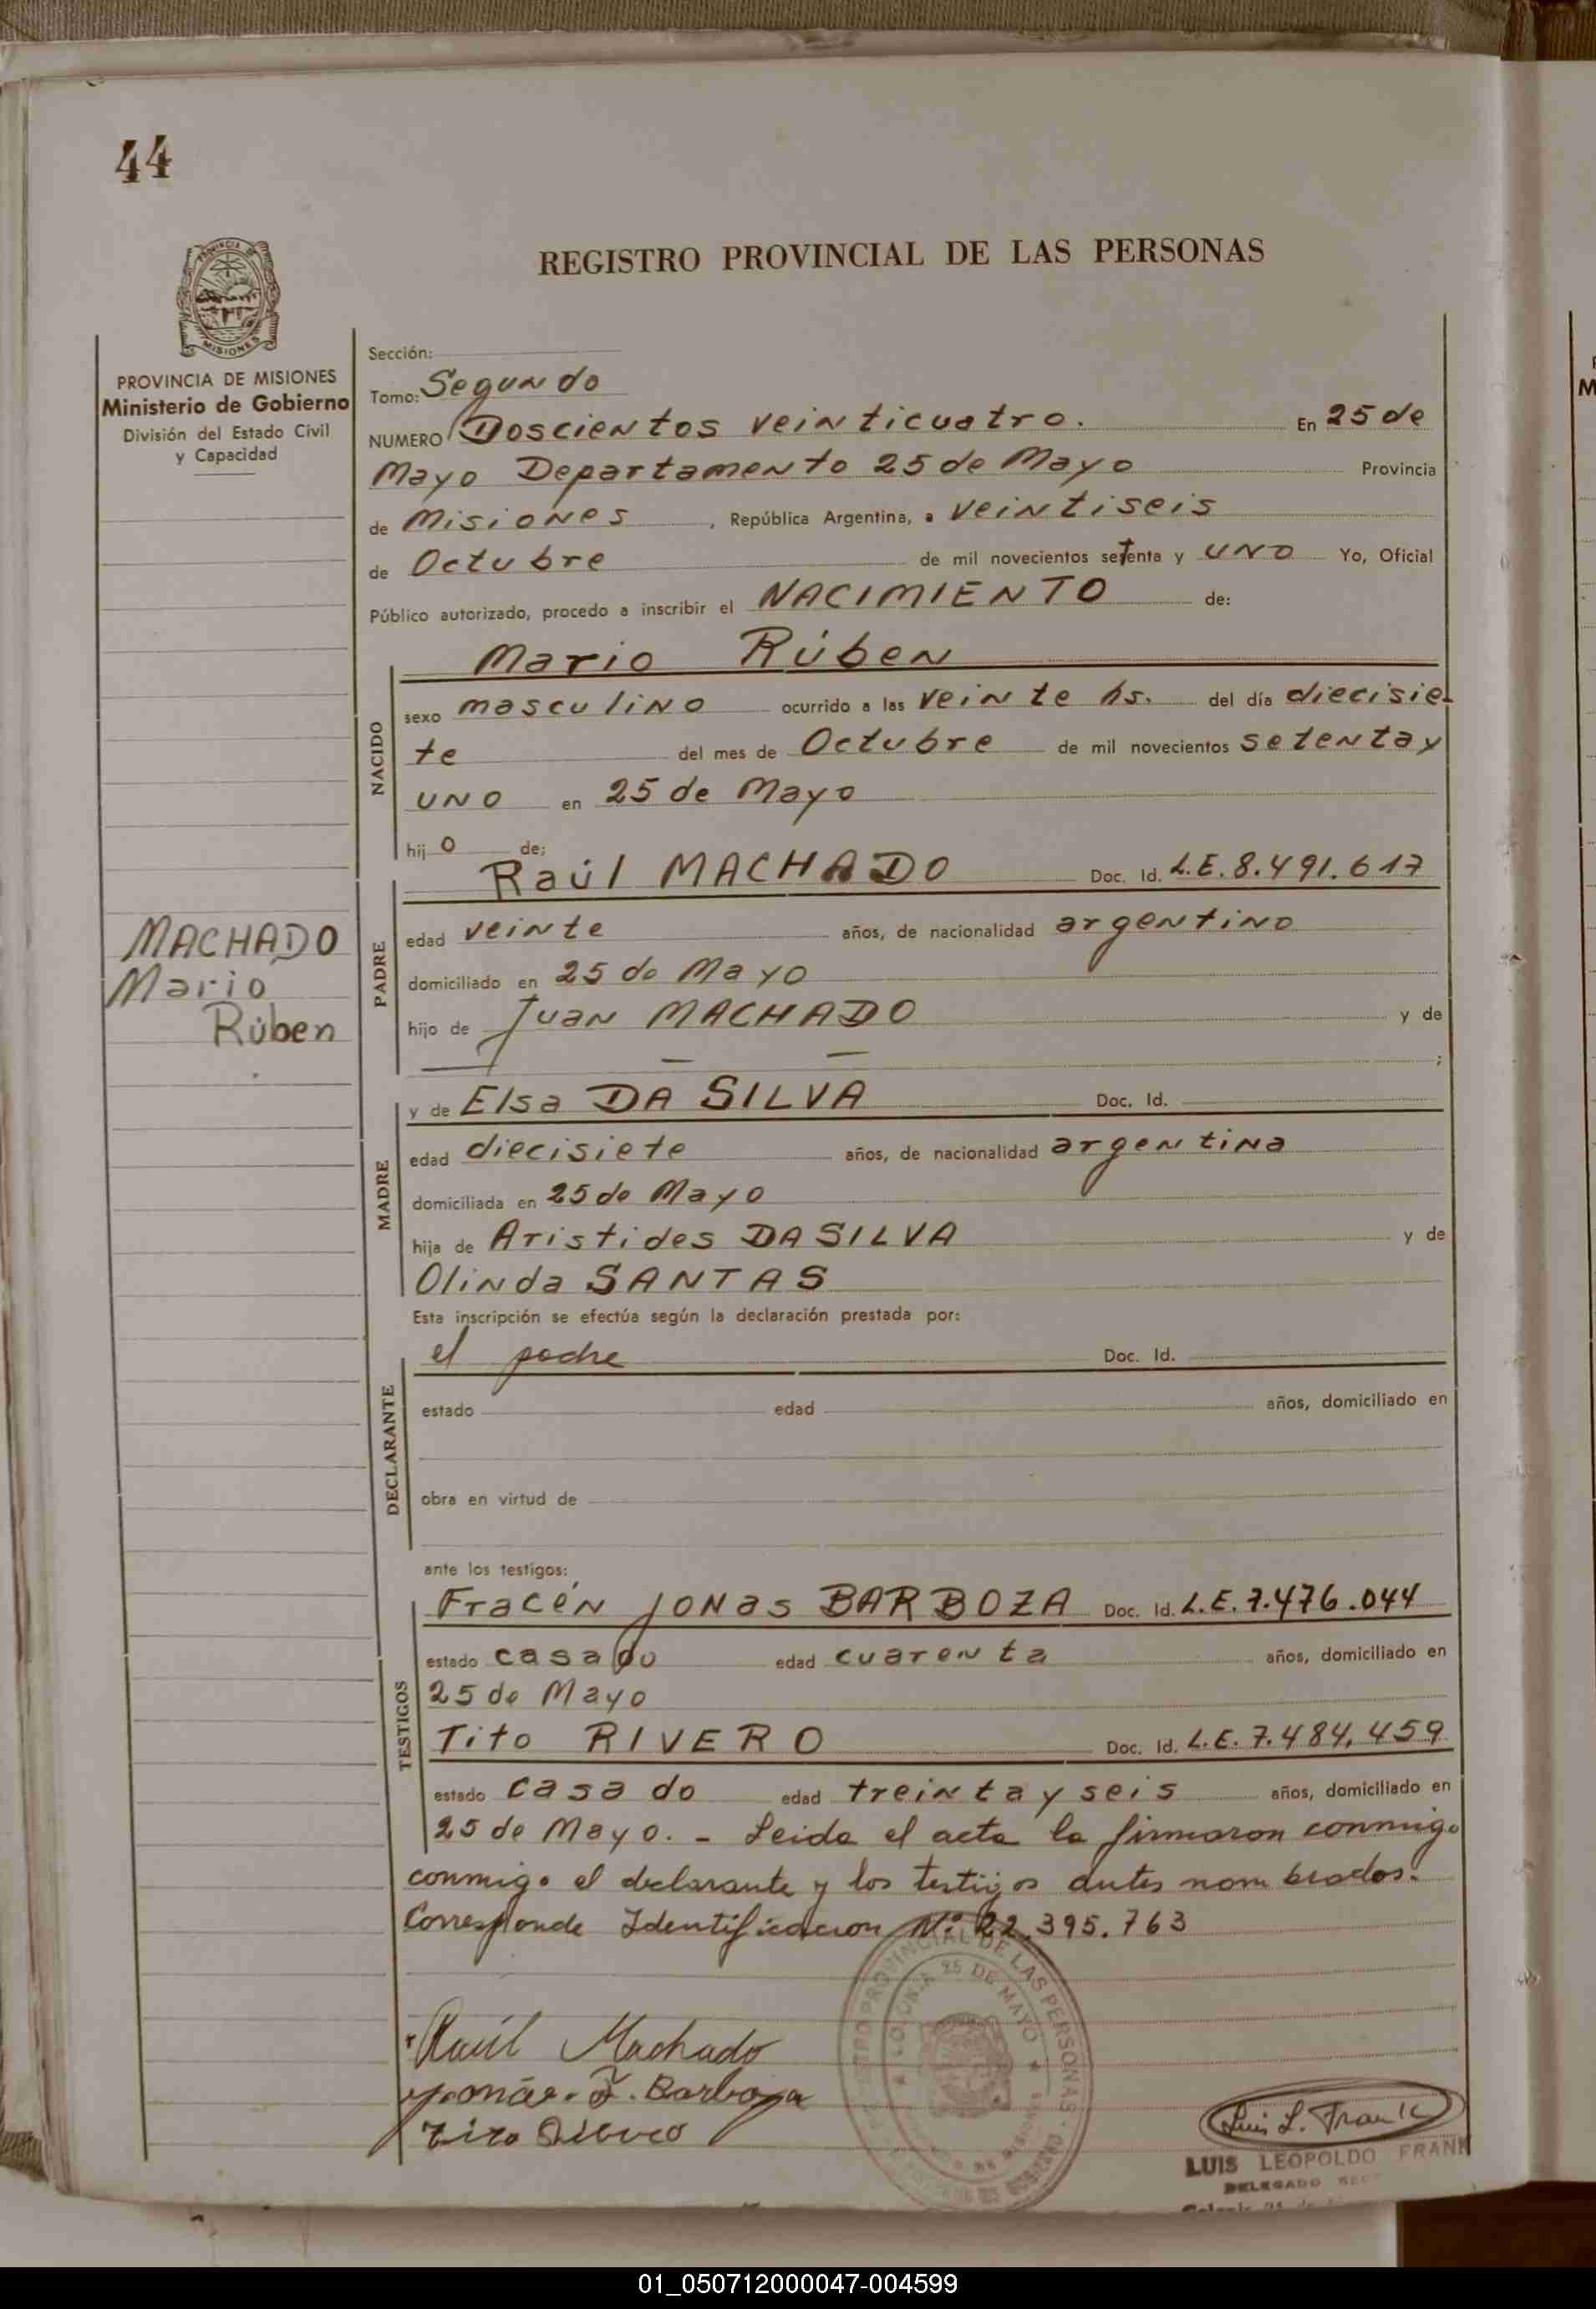 44
REGISTRO PROVINCIAL DE LAS PERSONAS
PROVINCIA DE MISIONES
Ministerio de Gobierno
División del Estado Civil
y Capacidad
Sección:
Tomo: Segundo
NUMERO Doscientos veinticuatro. En 25 de
Mayo Departamento 25 de Mayo Provincia
de Misiones, República Argentina, a veintiseis
de Octubre de mil novecientos setenta y uno Yo, Oficial
Público autorizado, procedo a inscribir el NACIMIENTO de:
Mario Rúben
NACIDO
sexo masculino ocurrido a las veinte hs. del día diecisie-
te del mes de Octubre de mil novecientos setenta y
uno en 25 de Mayo
hijo de:
Raúl MACHADO Doc. Id. L.E. 8.491.617
PADRE
edad veinte años, de nacionalidad argentino
domiciliado en 25 de Mayo
hijo de Juan MACHADO y de
— — — ;
MACHADO
Mario
Rúben
y de Elsa DA SILVA Doc. Id.
MADRE
edad diecisiete años, de nacionalidad argentina
domiciliada en 25 de Mayo
hija de Aristides DA SILVA y de
Olinda SANTAS
Esta inscripción se efectúa según la declaración prestada por:
el padre Doc. Id.
DECLARANTE
estado edad años, domiciliado en
obra en virtud de
ante los testigos:
Fracén Jonas BARBOZA Doc. Id. L.E. 7.476.044
TESTIGOS
estado casado edad cuarenta años, domiciliado en
25 de Mayo
Tito RIVERO Doc. Id. L.E. 7.484.459
estado casado edad treinta y seis años, domiciliado en
25 de Mayo. - Leida el acta la firmaron conmigo
conmigo el declarante y los testigos antes nombrados.
Corresponde Identificacion Nº 22.395.763
Raúl Machado
Jonás. F. Barboza
Luis L. Frank
LUIS LEOPOLDO FRANK
DELEGADO
PROVINCIAL DE LAS PERSONAS
COLONIA 25 DE MAYO
01_050712000047-004599